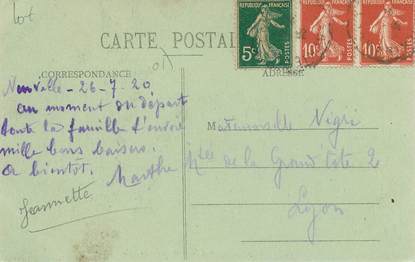 Lot
RÉPUBLIQUE FRANÇAISE
5c
POSTES
RÉPUBLIQUE FRANÇAISE
10c
POSTES
RÉPUBLIQUE FRANÇAISE
10c
POSTES
CARTE POSTALE
CORRESPONDANCE
ADRESSE
Neuville - 26-7-20
au moment du départ
toute la famille t'envoie
mille bons baisers.
a bientôt. Marthe
Jeannette
Mademoiselle Nigri
de la Grand Côte 2
Lyon